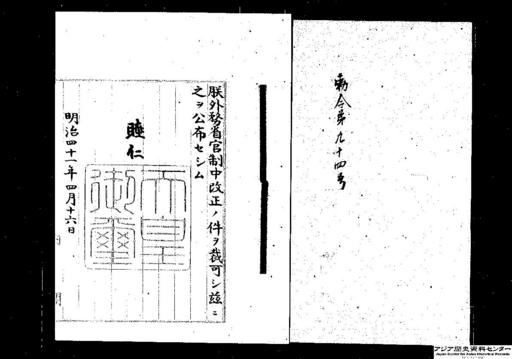 勅令第九十四号
朕外務省官制中改正ノ件ヲ裁可シ茲ニ
之ヲ公布セシム
睦仁
天皇御璽
明治四十一年四月十六日
アジア歴史資料センター
Japan Center for Asian Historical Records